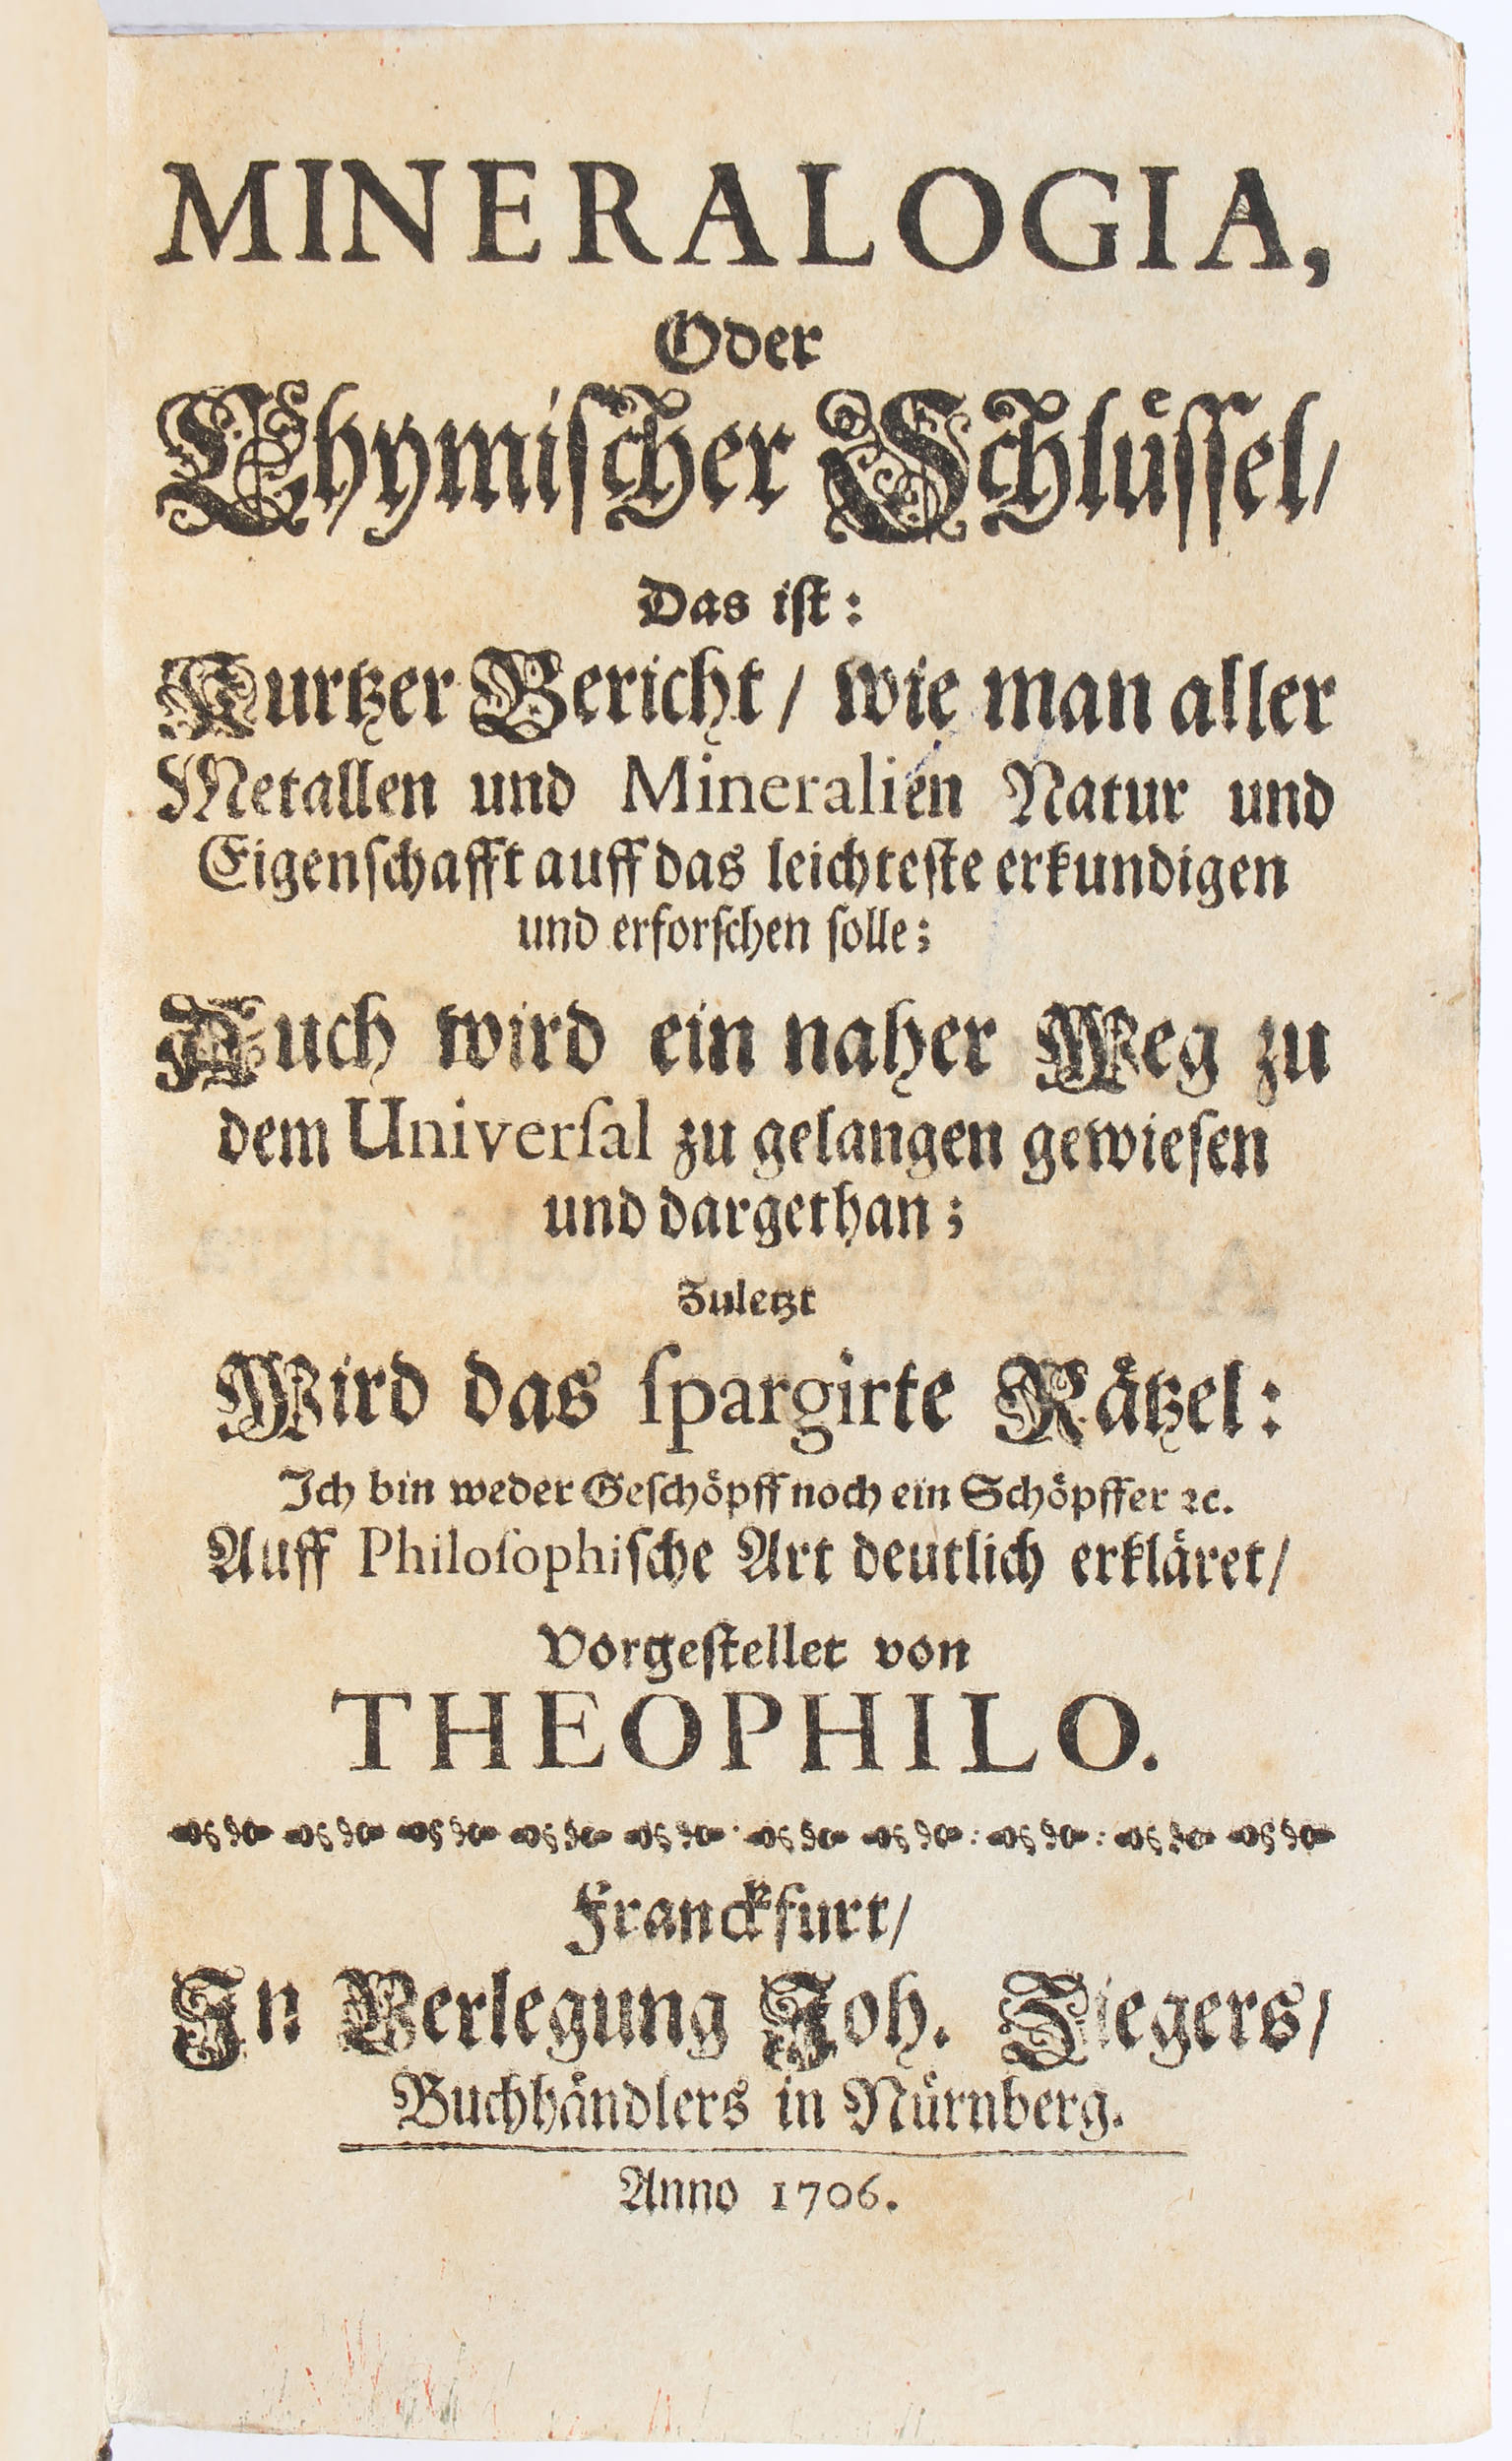 MINERALOGIA,
Oder
Chymiſcher Schlüſſel/
Das iſt:
Kurtzer Bericht/ wie man aller
Metallen und Mineralien Natur und
Eigenſchafft auff das leichteſte erkundigen
und erforſchen ſolle;
Auch wird ein naher Weg zu
dem Univerſal zu gelangen gewieſen
und dargethan;
Zuletzt
Wird das ſpargirte Rätzel:
Ich bin weder Geſchöpff noch ein Schöpffer ꝛc.
Auff Philoſophiſche Art deutlich erkläret/
Vorgeſtellet von
THEOPHILO.
Franckfurt/
In Verlegung Joh. Ziegers/
Buchhändlers in Nürnberg.
Anno 1706.